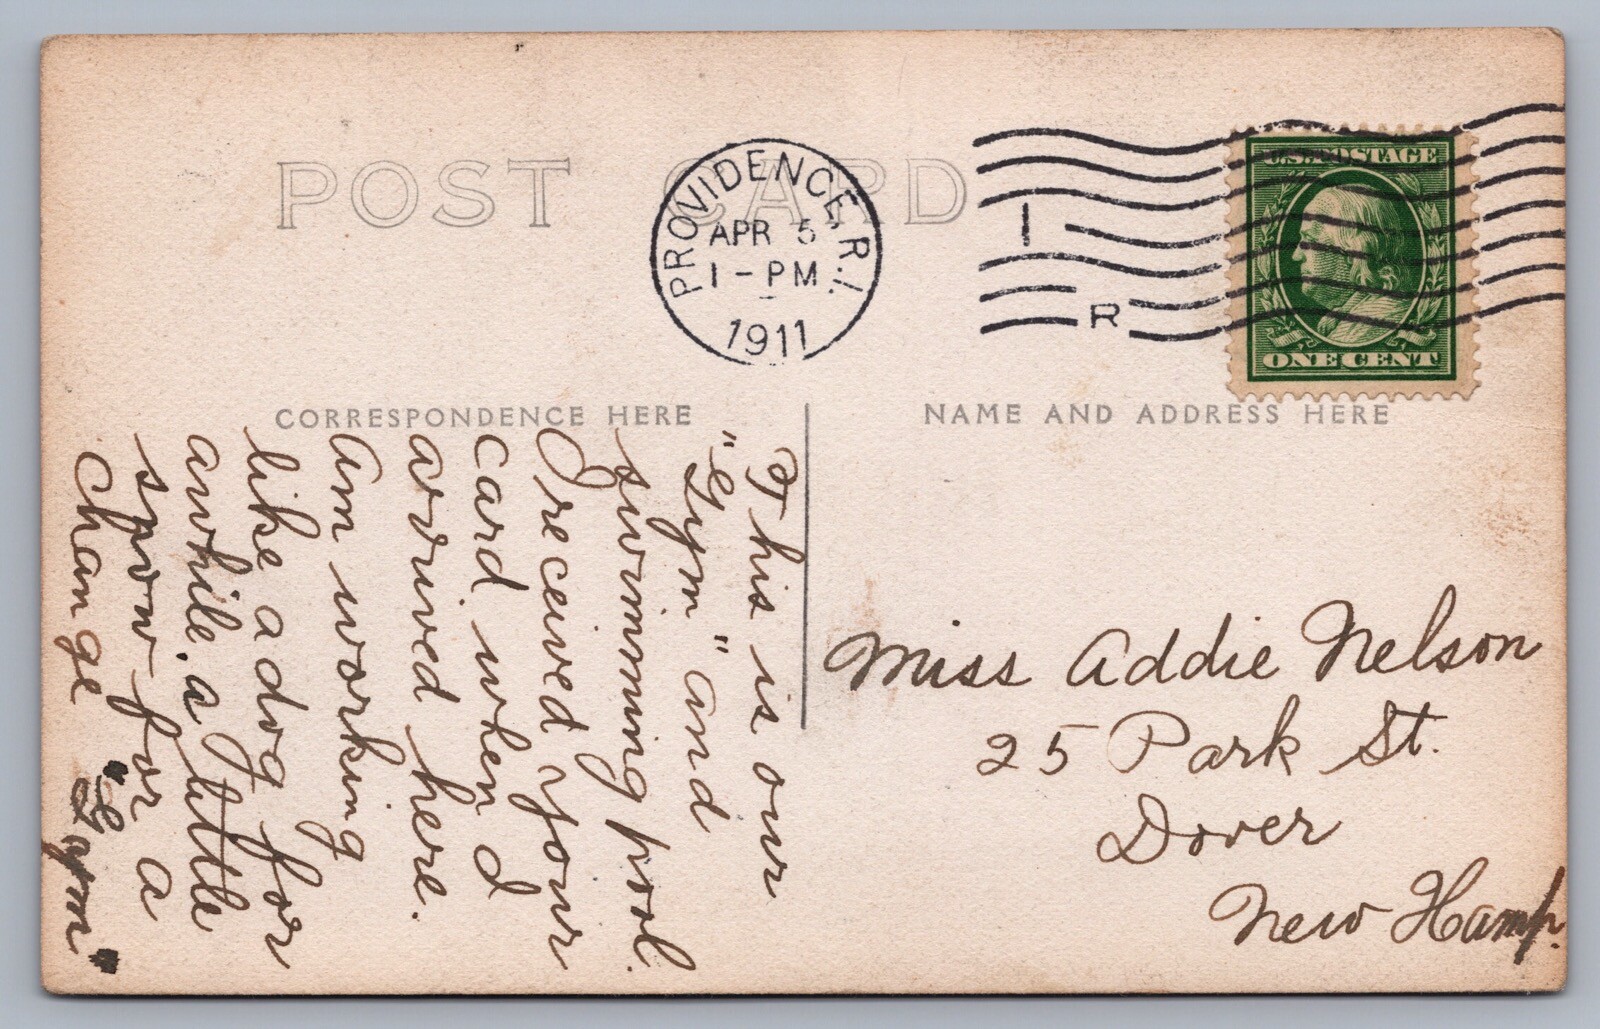 POST CARD
PROVIDENCE, R.I.
APR 5
1-PM
1911
1
R
U.S. POSTAGE
ONE CENT
CORRESPONDENCE HERE
NAME AND ADDRESS HERE
This is our
"Gym" and
swimming pool.
I received your
card when I
arrived here.
Am working
like a dog for
awhile. a little
spow for a
change "Gym"
Miss Addie Nelson
25 Park St.
Dover
New Hamp.